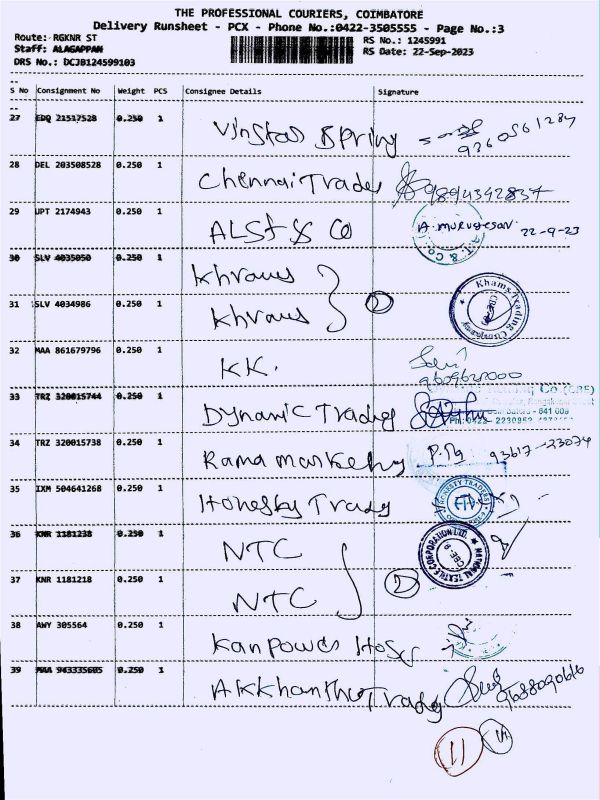 THE PROFESSIONAL COURIERS, COIMBATORE
Delivery Runsheet - PCX - Phone No.:0422-3505555 - Page No.:3
Route: RGKNR ST
RS No.: 1245991
Staff: ALAGAPPAN
RS Date: 22-Sep-2023
DRS No.: DCJB124599103
S No Consignment No Weight PCS Consignee Details Signature
27 EDQ 21517528 0.250 1 Vinstar Spring 9360561284
28 DEL 203508528 0.250 1 Chennai Trades 9894342837
29 UPT 2174943 0.250 1 ALSt & Co A. murugesan 22-9-23
30 SLV 4035050 0.250 1 Khraws
31 SLV 4034986 0.250 1 Khraws 2 Khams Trading Company
32 MAA 861679796 0.250 1 KK.
33 TRZ 320015744 0.250 1 Dynamic Trading
34 TRZ 320015738 0.250 1 Rama Marketing 93617-23074
35 IXM 504641268 0.250 1 Honesty Trady HONESTY TRADERS
36 KNR 1181238 0.250 1 NTC NATIONAL TEXTILE CORPORATION LTD. CBE-9
37 KNR 1181218 0.250 1 NTC 2
38 AWY 305564 0.250 1 Kanpowder Hosy
39 MAA 943335605 0.250 1 Akkhanthu Tradg 9688090616
11